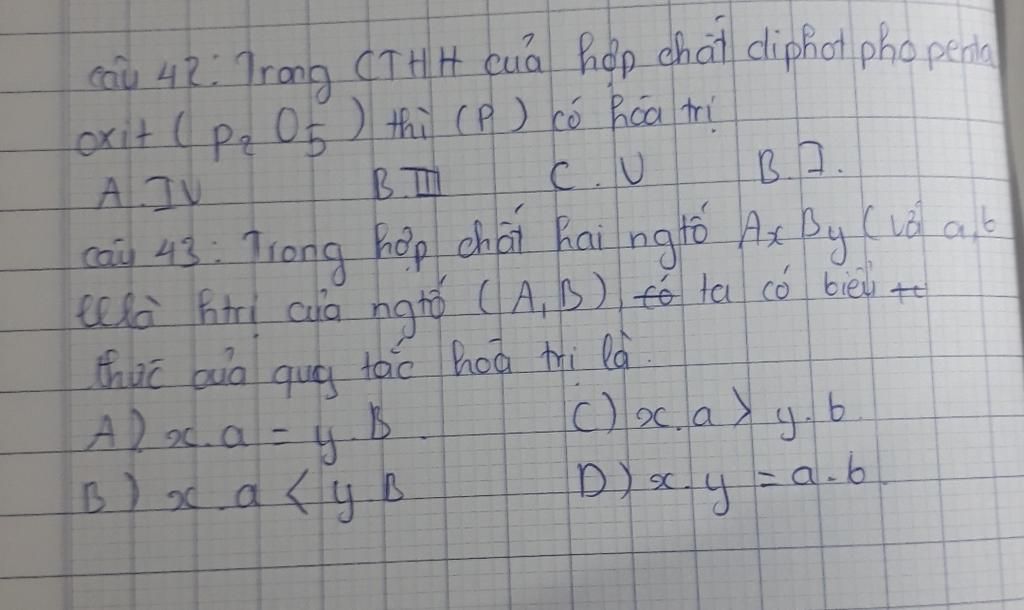 câu 42: Trong CTHH của hợp chất điphot pho penta
oxit ( P2 O5 ) thì (P) có hóa trị
A. IV B. III C. V B. I.
câu 43: Trong hợp chất hai ngtố AxBy (với a,b
là htrị của ngtố (A,B) có ta có biểu
thức của quy tắc hoá trị là.
A) x.a = y.B. C) x.a > y.b
B) x.a < y B D) x.y = a.b